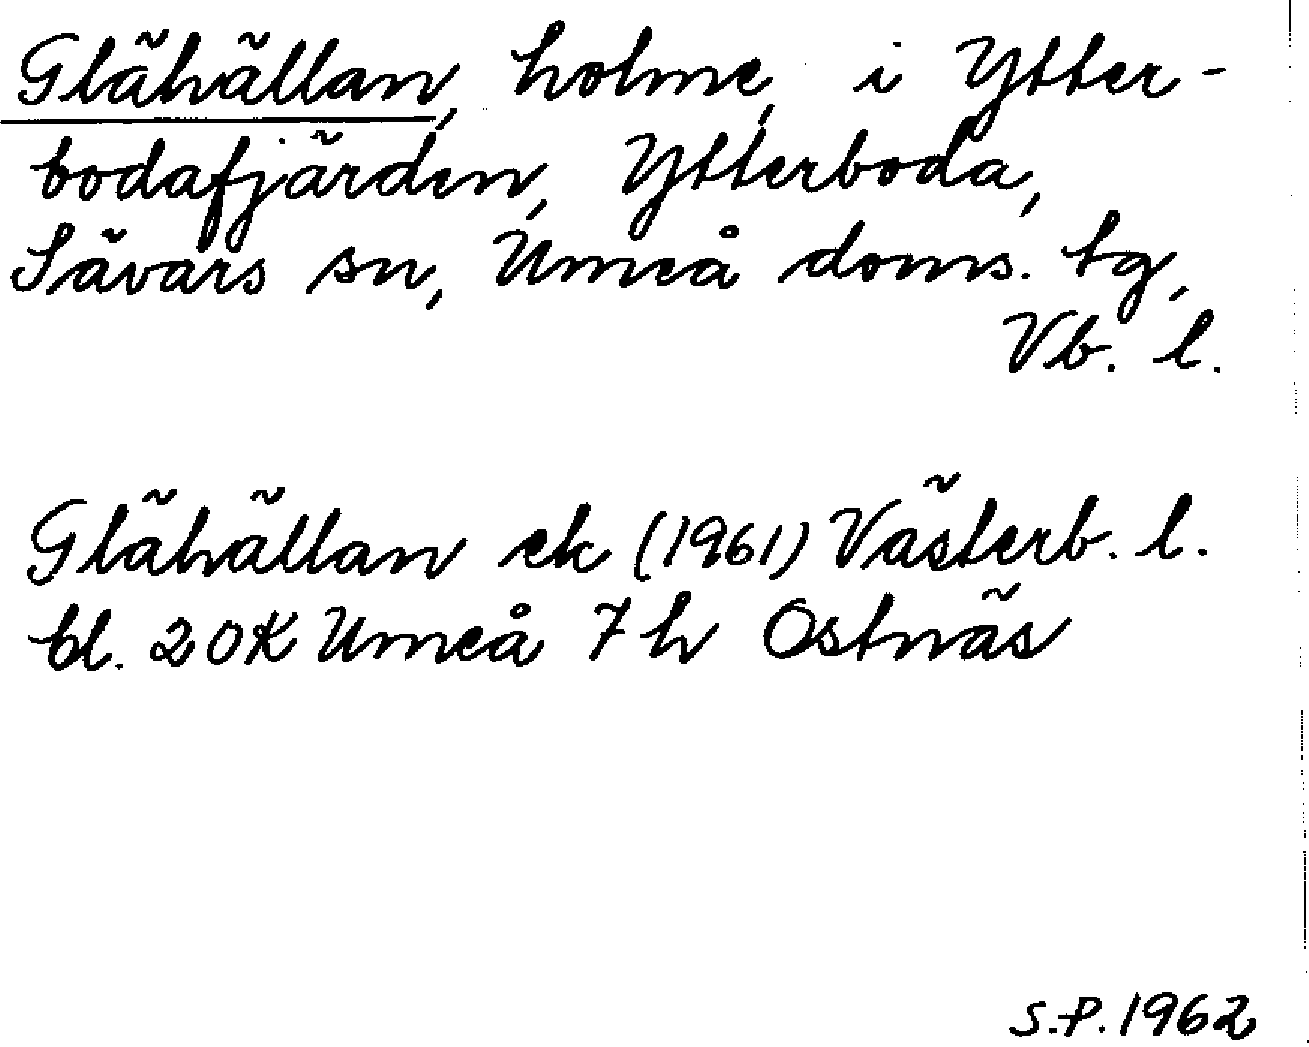 Glähällan, holme, i Ytter-
bodafjärden, Ytterboda,
Sävars sn, Umeå doms. tg,
Vb. l.
Glähällan ek (1961) Västerb. l.
bl. 20K Umeå 7h Ostnäs
S.P. 1962